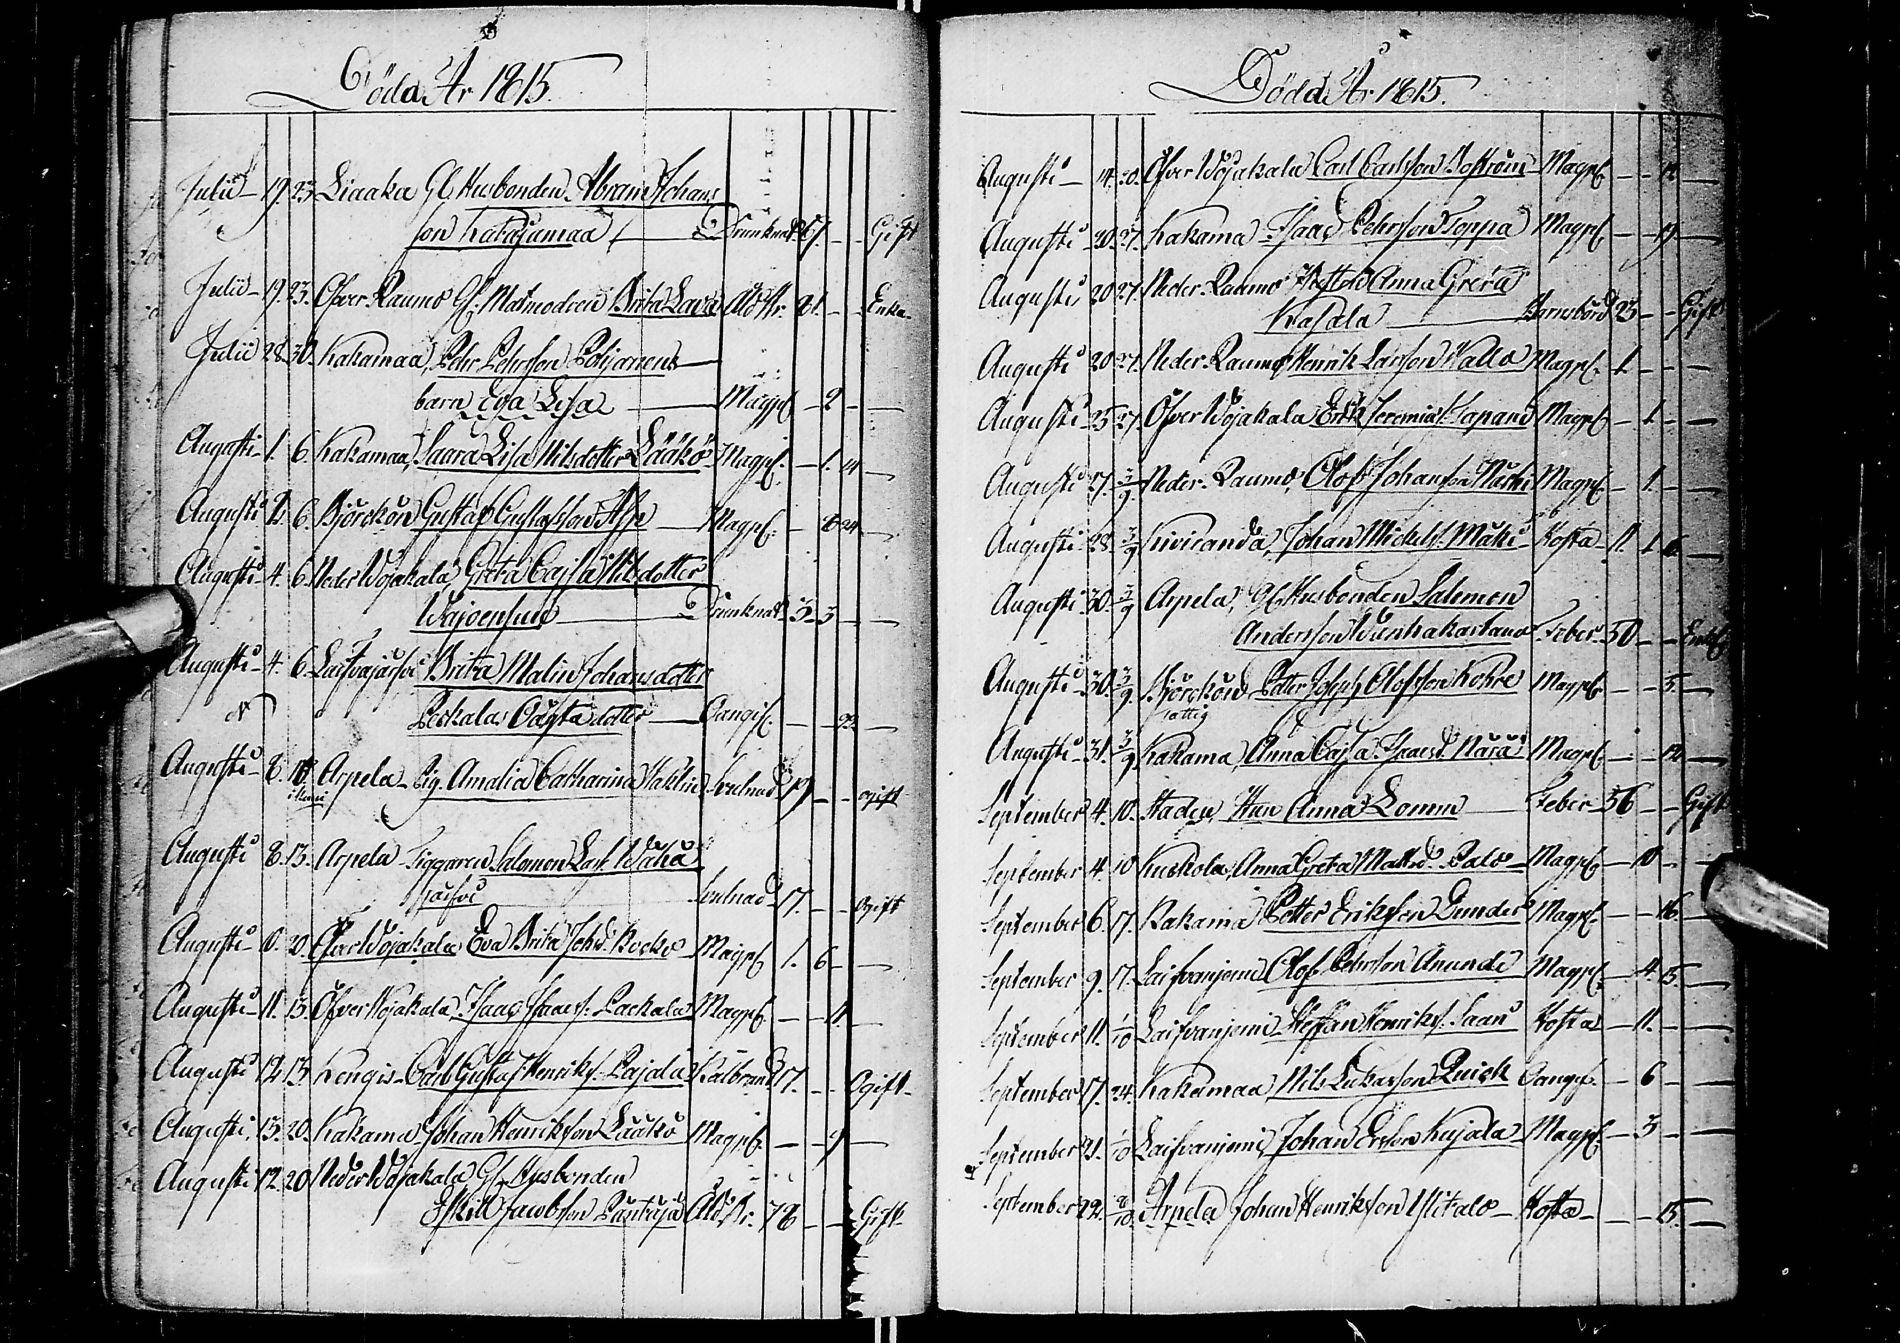 Döda År 1815.
Julii 19. 23 Liaaka Gl Husbonden Abram Johans
son Kakajamaa Drunknat 67. - - Gift
Julii 19. 23. Öfver Raumo Gl. Matmodren Brita Lava Åldr. 81. - - Enka
Julii 28. 30. Kakamaa, Pehr Pehrsson Pohjanens
barn Eva Lisa Magpl - 2 - -
Augusti 1. 6. Kakamaa, Saara Lisa Nilsdotter Lääkö Magpl. - 1. 14 -
Augusti 2. 6. Björckön Gustaf Gustafsson Alp Magpl. - 8 24 -
Augusti 4. 6. Neder Wojakala Greta Cajsa Nilsdotter
Wajoensuu Drunknat 3 3 - -
Augusti 4. 6. Brita Malin Johansdotter
Peckalas dotter Oangif. - - 22 -
Augusti 8. Arpela Pig. Amalia Catharina Stahlin 19 - - ogift
Augusti 8. 13. Arpela Salomon Wähä
17. - - Ogift
Augusti 10. 20. Öfver Wojakala Eva Brita Joh.d. Magpl 1. 6 - -
Augusti 11. 13. Öfver Wojakala, Isaac Isaacs. Packala Magpl - - 11 -
Augusti 12 13 Kengis Carl Gustaf Henriks. Pajala Kalbrand 17. - - Ogift
Augusti 13. 20. Kakama Johan Henriksson Lääkö Magpl. - - 9 -
Augusti 12. 20 Neder Wojakala Gl. Husbonden
Eskill Jacobsson Lantaja Åldr. 78 - - Gift
Döda År 1815.
Augusti 14. 20. Öfver Wojakala Carl Carlsson Boström Magpl. - - 12 -
Augusti 20 27. Kakama Isaac Pehrsson Toppa Magpl. - - 17 -
Augusti 20 27. Neder Raumo Anna Greta
Kasala Barnsbörd 23 - - Gift
Augusti 20 27. Neder Raumo Henrik Larsson Kallo Magpl. 1. - - -
Augusti 25 27. Öfver Wojakala Erik Jeremias. Magpl - 1. - -
Augusti 27. 3/9 Neder Raumo, Olof Johansson Magpl - 1. - -
Augusti 28. 3/9 Kiviranda, Johan Mickels. Mäki Hosta 11. 1 6 -
Augusti 30 3/9 Arpela, Gl. Husbonden Salomon
Andersson Feber 50 - -
Augusti 30. 3/9 Björckön Petter Joseph Olofsson Kohre Magpl - - 5 -
Augusti 31. 3/9 Kakama Anna Cajsa Isacsd. Närä Magpl - - 12 -
September 4. 10. Staden, Anna Lomm Feber 56 - - Gift
September 4. 10 Kuckola, Anna Greta Matsd. Palo Magpl - 10 - -
September 6. 17. Kakama Petter Eriksson Gunder Magpl - - 16 -
September 9. 17. Laifvanjemi Olof Pehrsson Anundi Magpl. - 4. 15 -
September 11. 1/10 Laifvanjemi Steffan Henriks. Hosta - 11. - -
September 17. 24. Kakamaa, Nils Lukasson Quick Oangif. - 6 - -
September 21. 1/10 Laifvanjemi, Johan Ersson Kujala Magpl - 3 - -
September 22. 8/10 Arpela Johan Henriksson Ylitalo Hosta - - 15 -